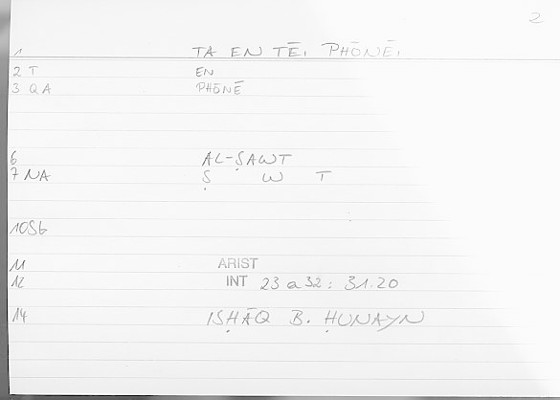 2
1 TA EN TĒI PHŌNĒI
2 T EN
3 QA PHŌNĒ
6 AL-ṢAWT
7 NA Ṣ W T
10 Sb
11 ARIST
12 INT 23 a 32 : 31.20
14 ISḤĀQ B. ḤUNAYN